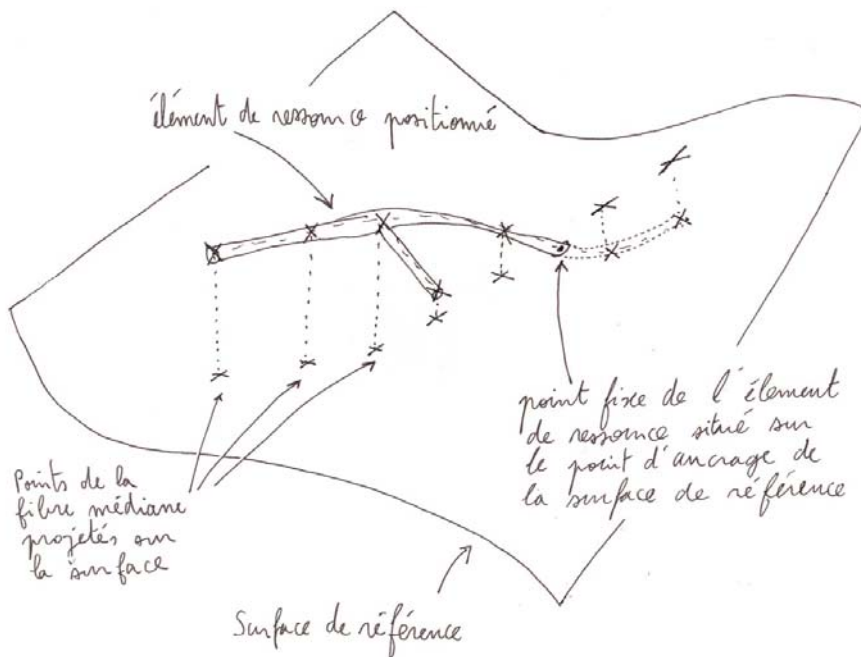 élément de ressource positionné
point fixe de l'élément
de ressource situé sur
le point d'ancrage de
la surface de référence
Points de la
fibre médiane
projetés sur
la surface
Surface de référence